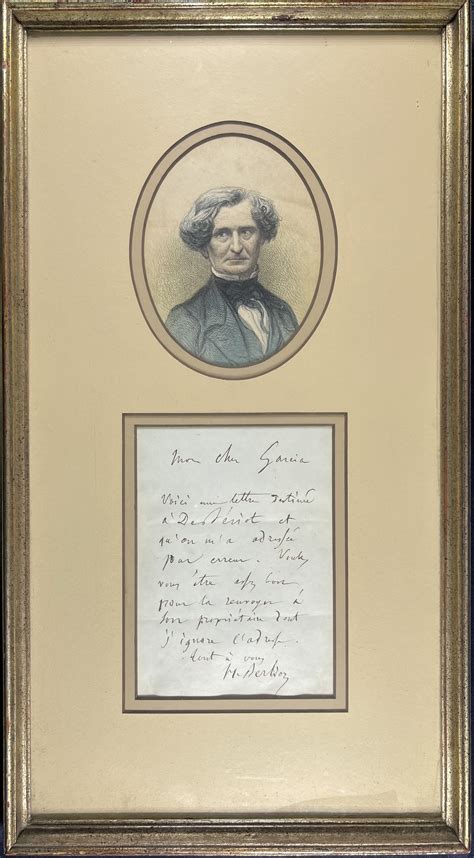 Mon cher Garcia
Voici une lettre destinée
à et
qu'on m'a adressée
par erreur. Voulez
vous être assez bon
pour la renvoyer à
son propriétaire dont
j'ignore l'adresse.
tout à vous
H. Berlioz